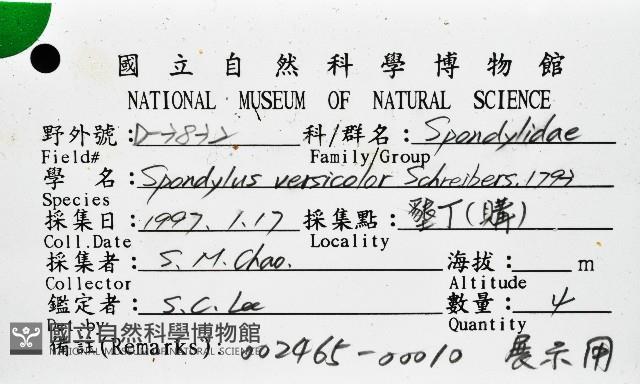 國立自然科學博物館
NATIONAL MUSEUM OF NATURAL SCIENCE
野外號: 科/群名: Spondylidae
Field# Family/Group
學 名: Spondylus versicolor Schreibers. 1793
Species
採集日: 1997.1.17 採集點: 墾丁(購)
Coll.Date Locality
採集者: S. M. Chao. 海拔: m
Collector Altitude
鑑定者: S. C. Lee 數量: 4
Det.by Quantity
備註(Remarks): 002465-00010 展示用
國立自然科學博物館
NATIONAL MUSEUM OF NATURAL SCIENCE